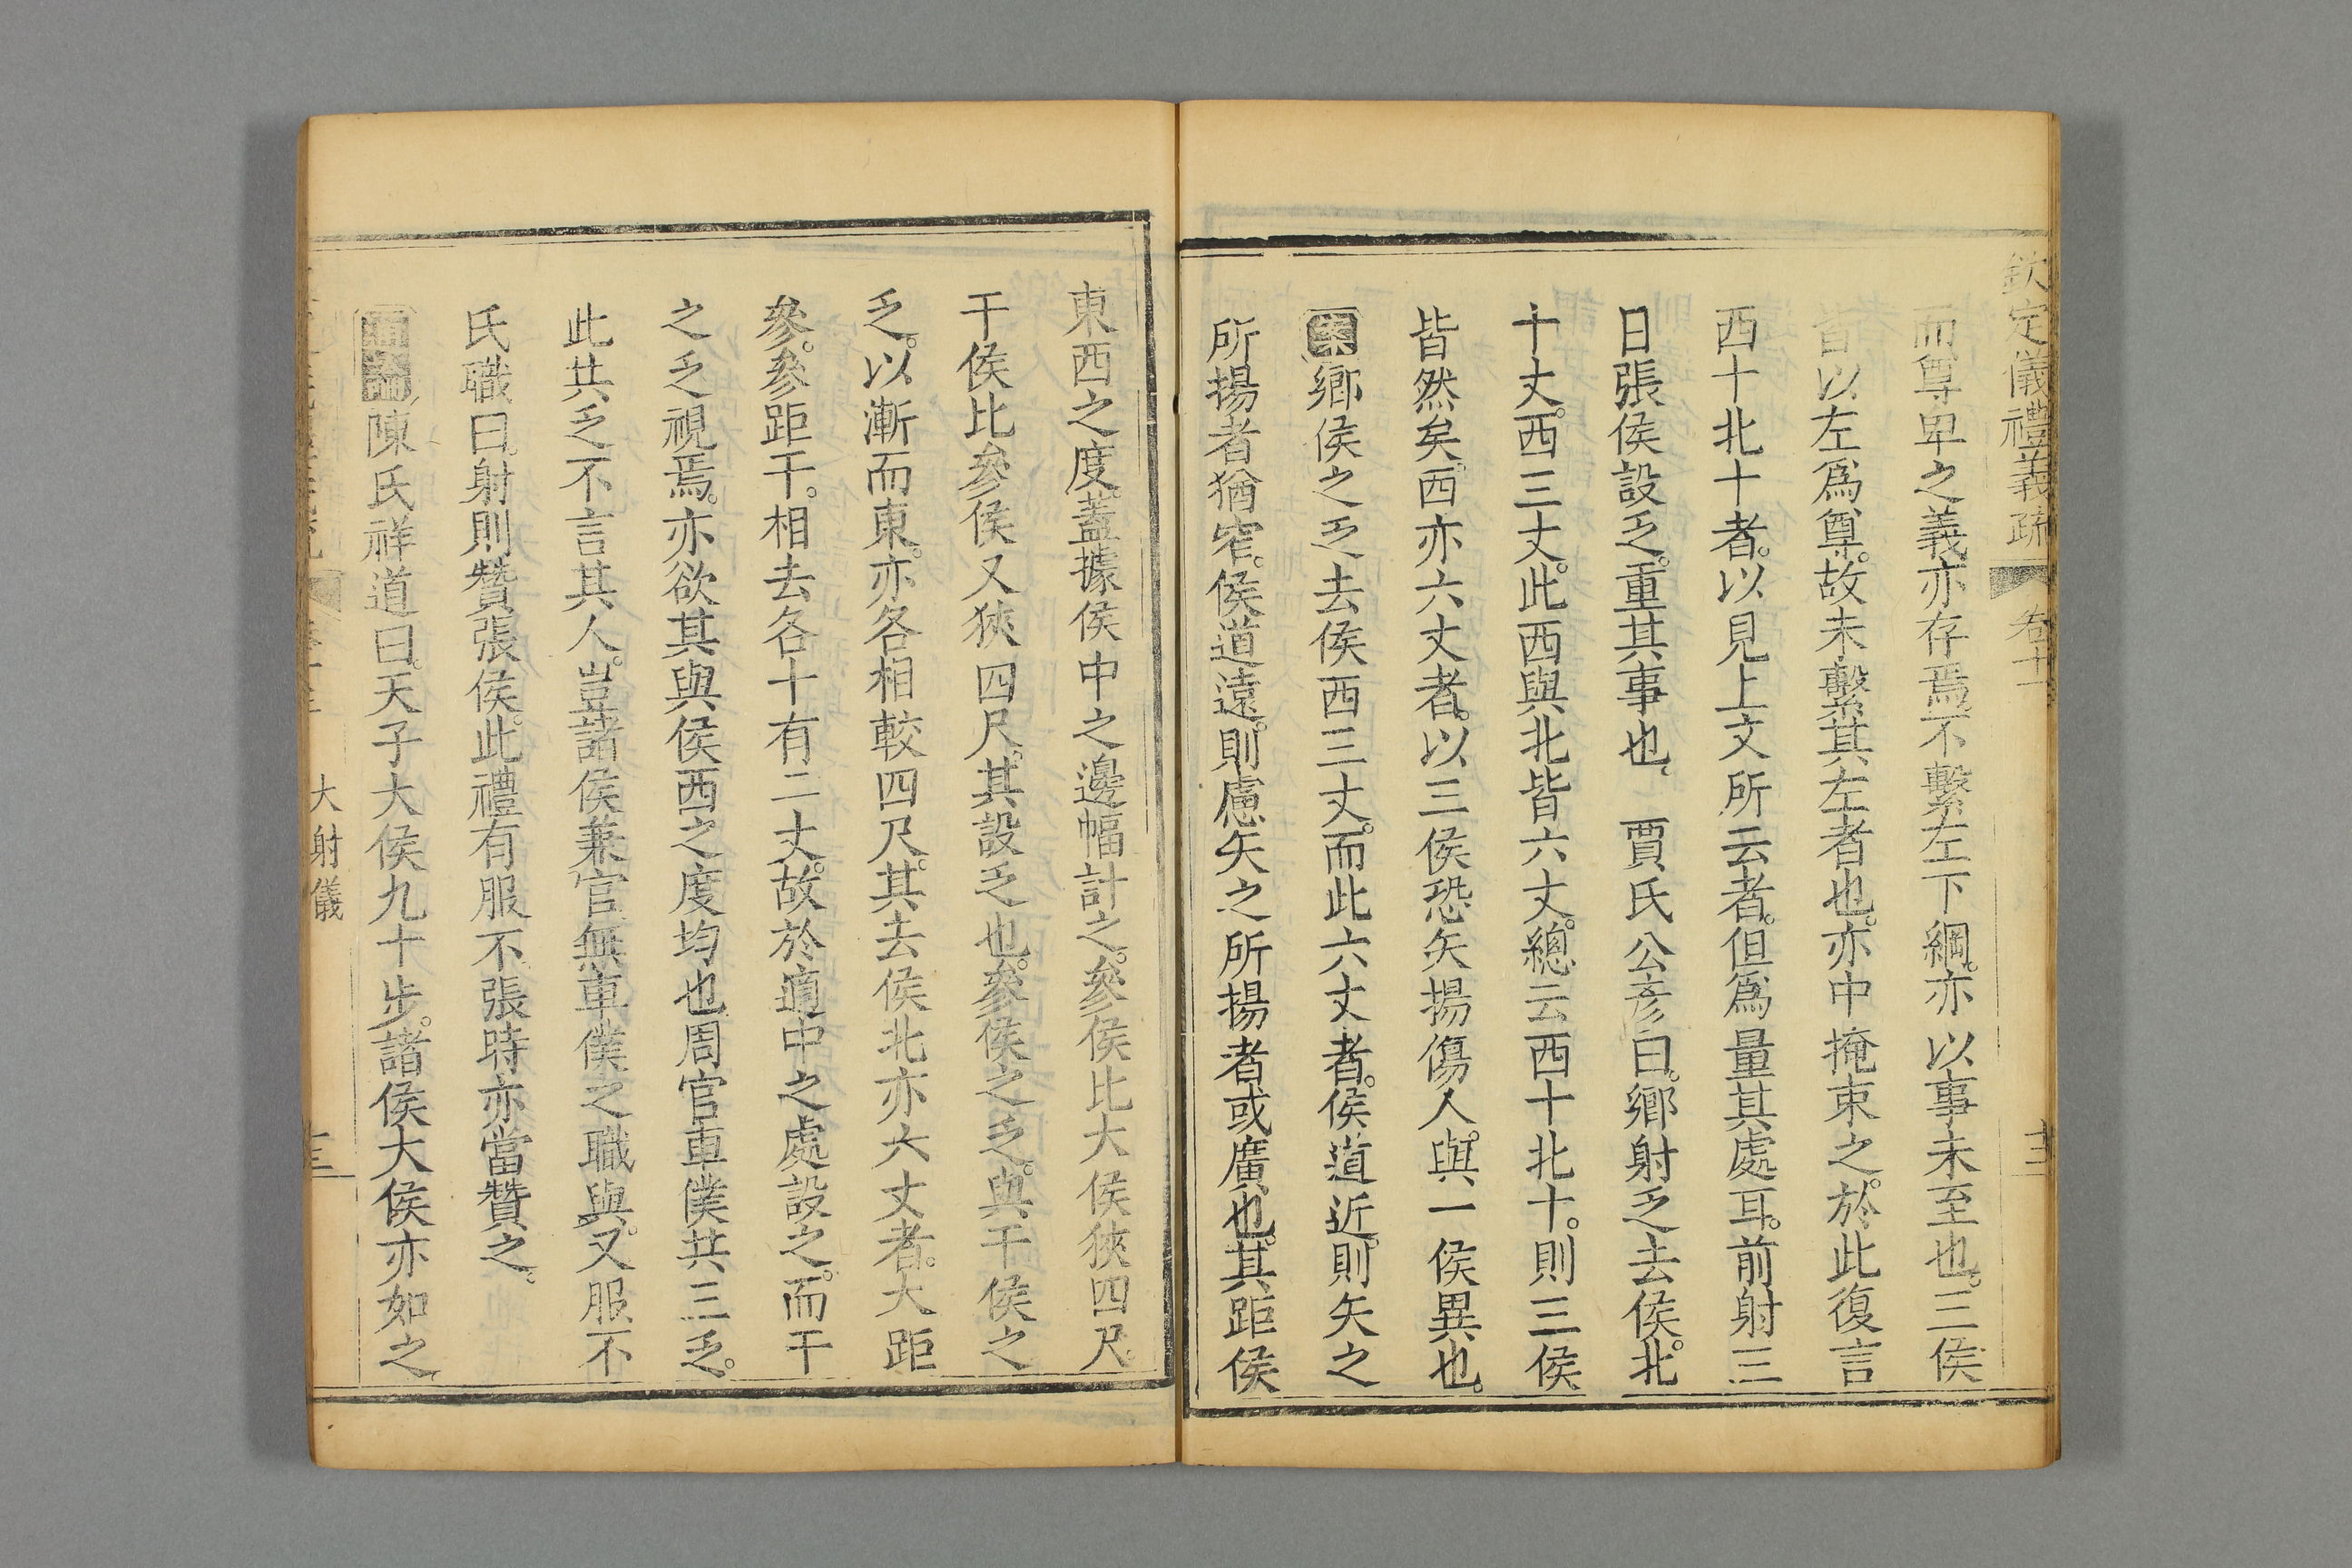 欽定儀禮義疏 卷十三 十三
而尊卑之義亦存焉。不繫左下綱。亦以事未至也。三侯
皆以左爲尊。故未繫其左者也。亦中掩束之。於此復言
西十北十者。以見上文所云者。但爲量其處耳。前射三
日張侯設乏。重其事也。 賈氏公彥曰。鄉射乏去侯。北
十丈。西三丈。此西與北皆六丈。總云西十北十。則三侯
皆然矣。西亦六丈者。以三侯恐矢揚傷人。與一侯異也。
案鄉侯之乏去侯西三丈。而此六丈者。侯道近。則矢之
所揚者猶窄。侯道遠。則慮矢之所揚者或廣也。其距侯
東西之度。蓋據侯中之邊幅計之。參侯比大侯狹四尺
干侯比參侯又狹四尺。其設乏也。參侯之乏。與干侯之
乏。以漸而東。亦各相較四尺。其去侯北亦六丈者。大距
參。參距干。相去各十有二丈。故於適中之處設之。而干
之乏視焉。亦欲其與侯西之度均也周官車僕共三乏。
此共乏不言其人。豈諸侯兼官無車僕之職與。又服不
氏職曰。射則贊張侯。此禮有服不張時亦當贊之。
陳氏祥道曰。天子大侯九十步。諸侯大侯亦如之
大射儀